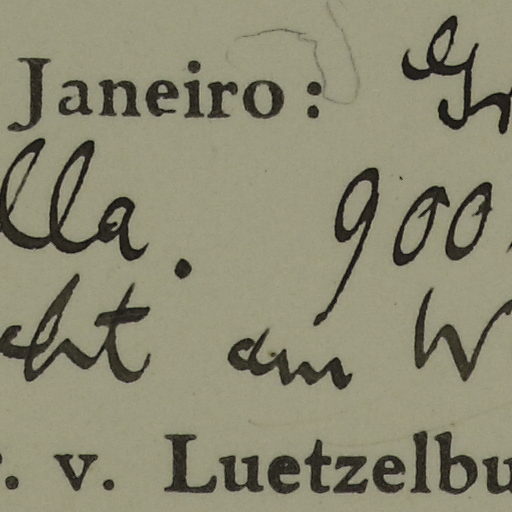 Janeiro: Gr
lla. 900
cht am W
r. v. Luetzelbu